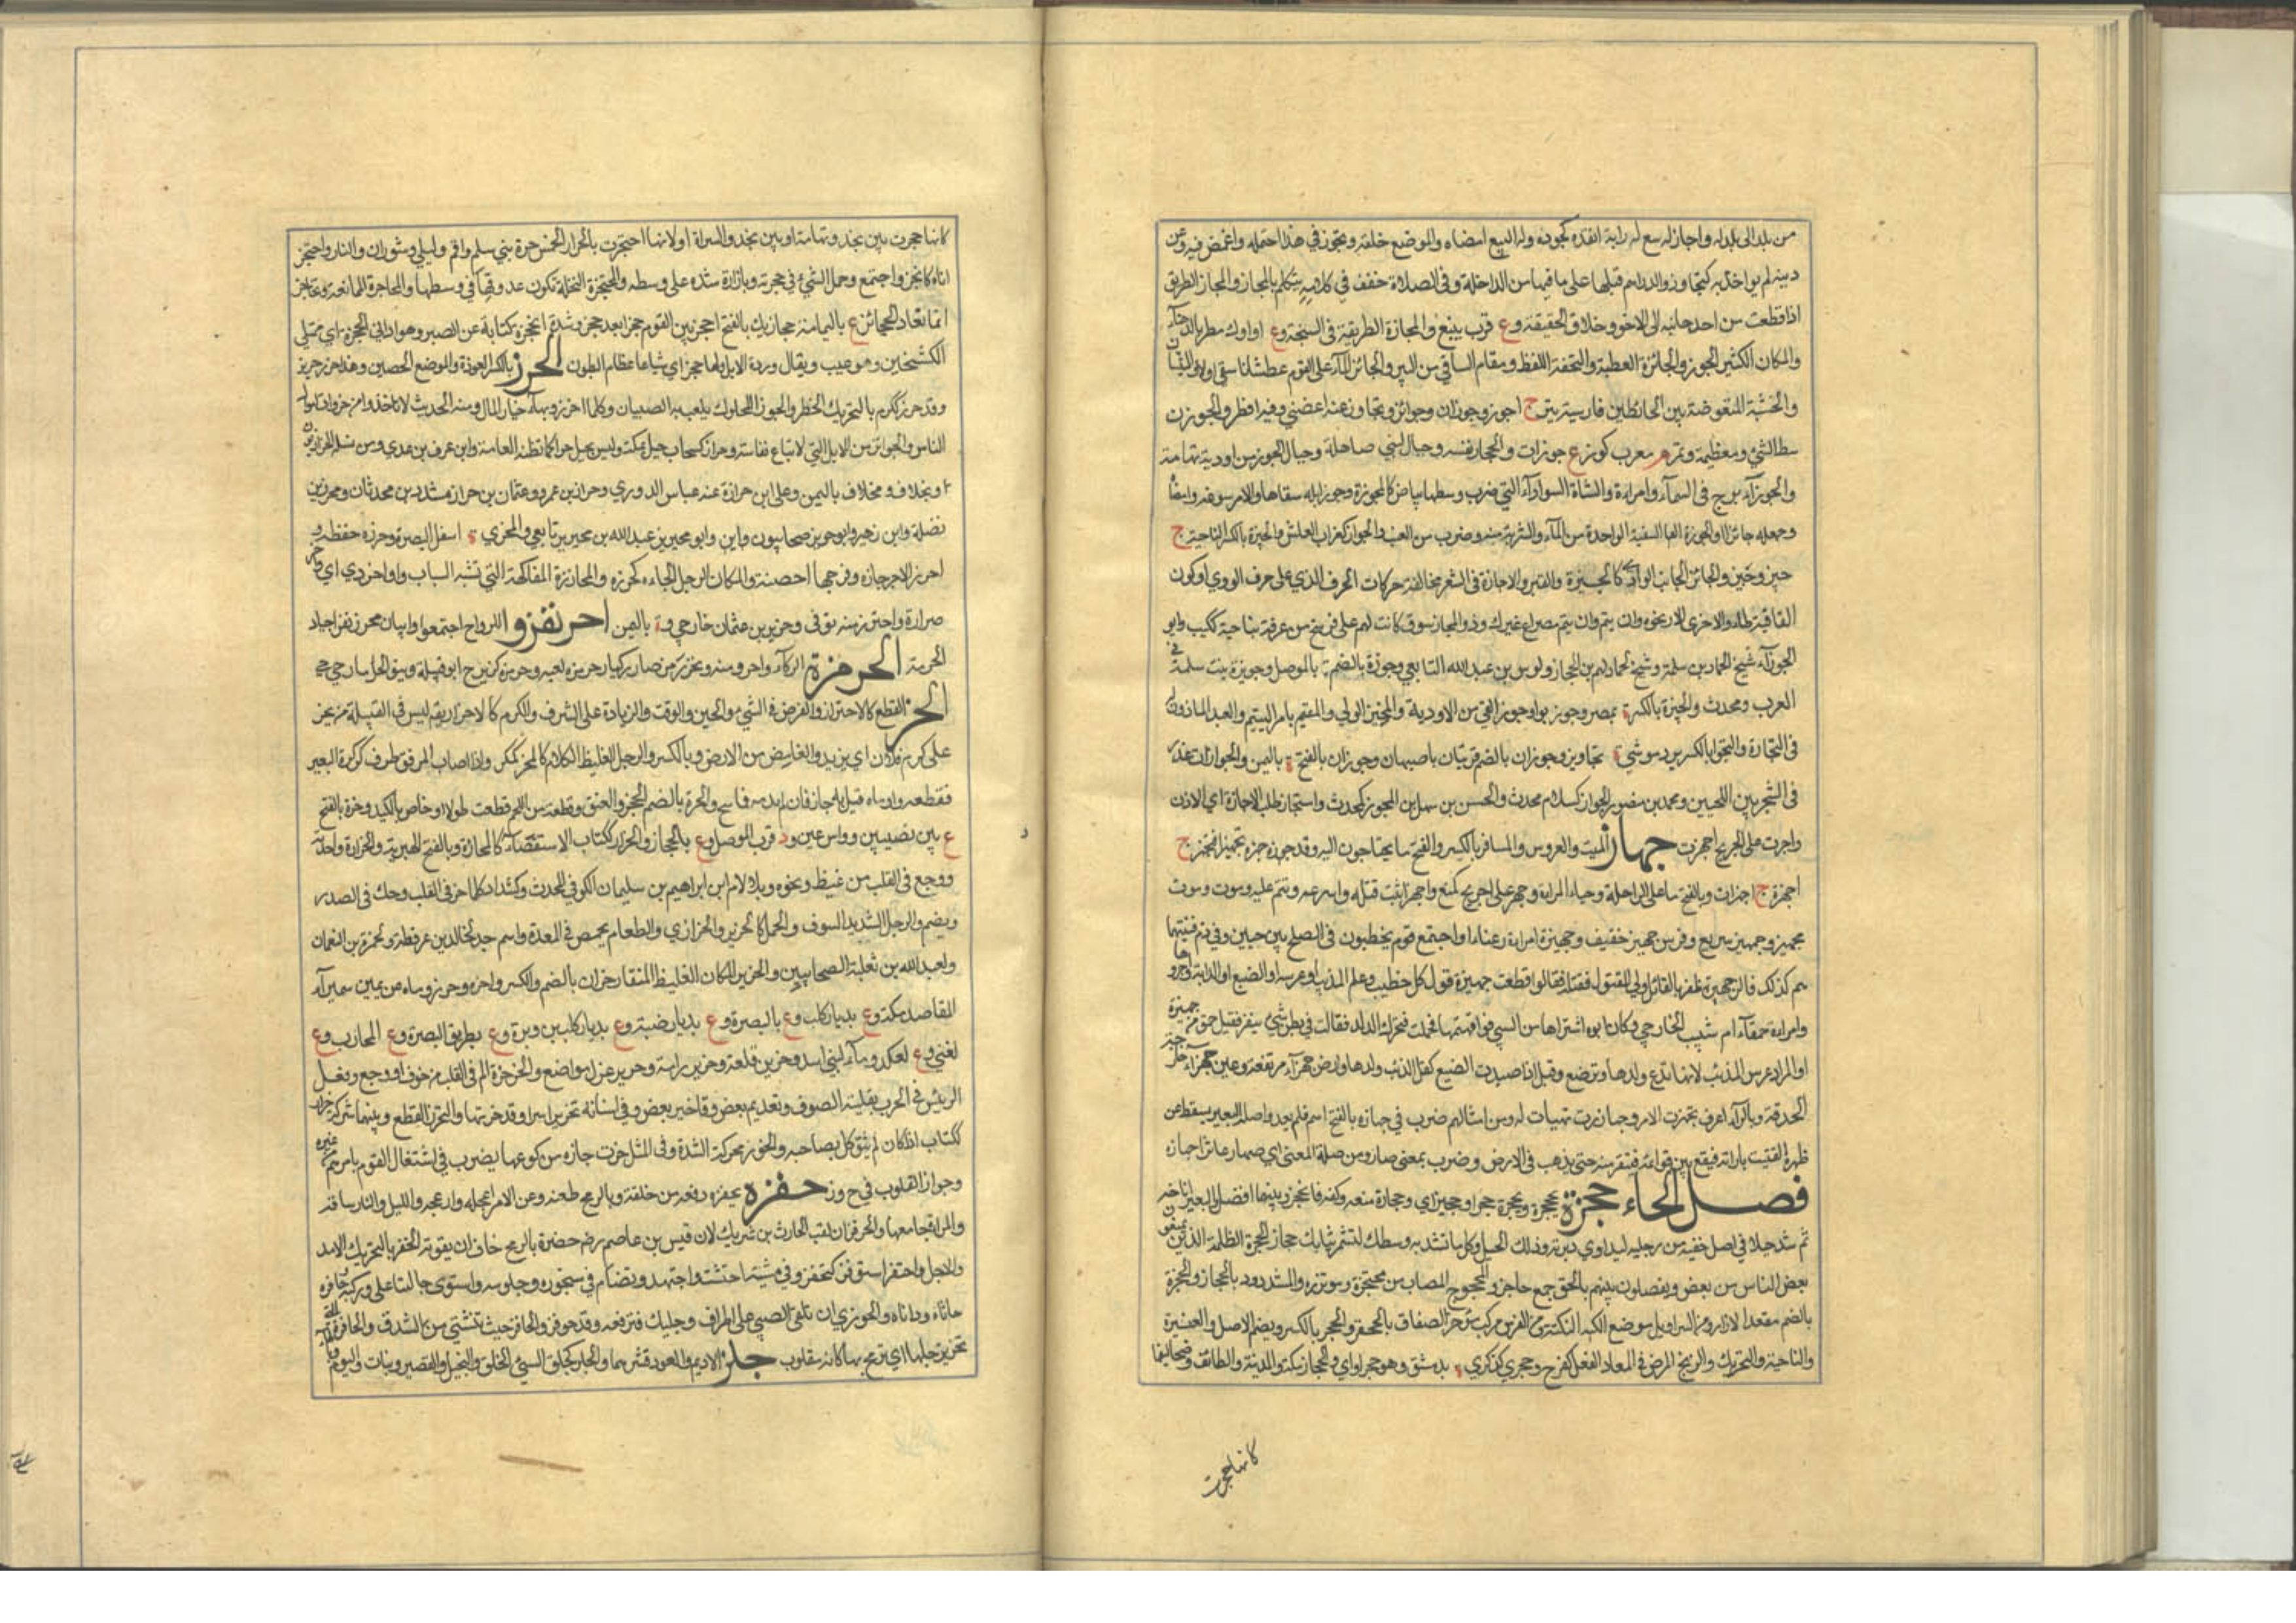 من بلد الى بلد له واجاز له سع له رايه انفذه كجوزه وله البيع امضاه والموضع خلفه وتجوز في هذا احتمله واغمض فيه وعن
ذنبه لم يواخذه به كتجاوز والدراهم قبلها على ما فيها من الداخلة وفي الصلاة خفف في كلامه تكلم بالمجاز والمجاز الطريق
اذا قطعت من احد جانبيه الى الاخر وخلاف الحقيقة وع قرب ينبع والمجازة الطريقة في السبخة وع اواول
والمكان الكثير الجوز والجائزة العطية والتحفة اللطف ومقام الساقي من البير والجائز المآر على القوم عطشانا سقى اولا
والخشبة المعترضة بين الحائطين فارسيته تير ج اجوز وجوزان وجوائز وتجاوز عنه اغضى وفيه افرط والجوز
سط الشي ومعظمه وثمر م معرب كوز ع جوزات والحجاز نفسه وجبال لبني صاهلة وجبال الجوز من اودية تهامة
والجوزآء برج في السمآء وامراءة والشاة السودآء التي ضرب وسطها بياض كالمجوزة وجوز ابله سقاها والامر سوغه وامضاه
وجعله جائزا والجوزة السقية الواحدة من المآء والشربة منه وضرب من العنب والجواز كغراب العطش والجيزة بالكسر الناحية ج
جيز وجيز والجائز الجانب الوادي كالجيزة والقبر والاجازة في الشعر مخالفة حركات الحرف الذي على حرف الروي او كون
القافية طاء والاخرى دالا ونحوه وان يتم مصراع غيرك وذو المجاز سوق كانت لهم على فرسخ من عرفة بناحية كبكب وابو
الجوزآء شيخ لحماد بن سلمة وشيخ لمسلم بن الحجاج واوس بن عبد الله التابعي وجوزة بالضم ة بالموصل وجويزة بنت سلمة في
العرب ومحدث والجيزة بالكسر ة بمصر وجوز بوا وجوز القي من الادوية والمجيز الولي والقيم بامر اليتيم والعبد الماذون له
في التجارة والتجواز بالكسر برد موشى ة تجاويز وجوزان بالضم قريتان باصبهان وجوزان بالفتح ة باليمن والجوازان غدتان
في الشجر بين اللحيين ومحمد بن منصور الجواز كسلام محدث والحسن بن سهل بن المجوز كمحدث واستجاز طلب الاجازة اي الاذن
واجزت على الجريح اجهزت جهاز الميت والعروس والمسافر بالكسر والفتح ما يحتاجون اليه وقد جهزه تجهيزا فتجهز ج
اجهزة ج اجهزات وبالفتح ما على الراحلة وحياء المراءة وجهز على الجريح كمنع واجهز اثبت قتله واسرعه وتمم عليه وموت
مجهز وجهيز سريع وفرس جهيز خفيف وجهيزة امراءة رعناء واجتمع قوم يخطبون في الصلح بين حيين في دم
كي يرضوا بالدية فبينا هم كذلك
وامراءة حمقآء ام شبيب الخارجي وكان ابوه اشتراها من السبي فواقعها فحملت فتحرك الولد فقالت في بطني شي ينقز فقيل احمق من جهيزة
او المراد عرس الذئب لانها تدع ولدها وترضع ولد الضبع وقيل اذا صيدت الضبع كفل الذئب ولدها وارض جهزآء مرتفعة وعين جهزآء
الحدقة وبالرآء اعرف تجهزت للامر واجهاززت تهيات له ومن امثالهم ضرب في جهازه بالفتح اي نفر فلم يعد واصله البعير يسقط عن
ظهره القتب باداته فيقع بين قوائمه فينفر منه حتى يذهب في الارض وضرب بمعنى صار ومن صلة المعنى اي صار عاثرا في جهازه
فصل الحاء حجزه يحجزه ويحجزه حجزا وحجيزى وحجازة منعه وكفه فانحجز وبينهما فصل والبعير اناخه
ثم شد حبلا في اصل خفيه من رجليه ليداوي دبرته وذلك الحبل وكل ما تشد به وسطك لتشمر ثيابك حجاز والحجزة الظلمة الذين يمنعون
بعض الناس من بعض ويفصلون بينهم بالحق جمع حاجز والمحجوز المصاب من محتجزه وموتزره والمشدود بالحجاز والحجزة
بالضم معقد الازار ومن السراويل موضع التكة ومن الفرس مركب مؤخر الصفاق بالحقو والحجز بالكسر ويضم الاصل والعشيرة
والناحية وبالتحريك والزنج المرض في المعاء والفعل كفرح وحجزى كذكرى ة بدمشق وهو حجزاوي والحجاز مكة والمدينة والطائف ومخاليفها
كانها حجزت
كانها حجزت بين نجد وتهامة او بين نجد والسراة او لانها احتجزت بالحرار الخمس حرة بني سليم وواقم وليلى وشوران والنار واحتجز
اتاه كانحجز واجتمع وحمل الشيء في حجزته وبازاره شده على وسطه والمحتجزة النخلة تكون عذوقها في وسطها والمحاجزة الممانعة وتحاجزا
تمانعا والحجائز ع باليمامة وحجازيك بالفتح احجز بين القوم حجزا بعد حجز وشدة الحجزة كناية عن الصبر وهو داني الحجزة اي ممتلي
الكشحين وهو عيب ويقال وردت الابل ولها حجز اي شباعا عظام البطون الحرز بالكسر العوذة والموضع الحصين وهذا حرز حريز
وقد حرز ككرم بالتحريك الخطر والجوز المحكوك يلعب به الصبيان وكل ما احرز وبهآء خيار المال ومنه الحديث لا تاخذوا من حرزات اموال
الناس والحرائز من الابل التي لا تباع نفاسة وحراز كسحاب جبل بمكة وليس بحراء كما تظنه العامة وابن عوف بن عدي ومن نسله الحرازيون
ومخلاف باليمن وعلي ابن حرازة عنه عباس الدوري وحراز بن عمرو وعثمان بن حراز مشددين محدثان ومحرز بن
نضلة وابن زهير وابو حريز صحابيون وابو محيريز عبد الله بن محيريز تابعي والمحرزي ة اسفل البصرة وحرزه حفظه و
احرز الاجر حازه وفرجها احصنته والمكان الرجل الجاه كحرزه والمحارزة المفاكهة التي تشبه السباب
واحترز منه توقى وحريز بن عثمان خارجي وة باليمن احرنقزوا للرواح اجتمعوا
الحرمة الحرمزة الذكآء واحرمز وتحرمز صار ذكيا وحرمزه لعنه وحرمز كزبرج ابو قبيلة وبنو الحرماز حي
الحز القطع كالاحتزاز والفرض في الشي والحين والوقت والزيادة على الشرف والكرم كالاحزاز يقال ليس في القبيلة من يحز
على كرم فلان اي يزيد والغامض من الارض وبالكسر والرجل الغليظ الكلام كالمحز كمكر واذا اصاب المرفق طرف كركرة البعير
فقطعه وادماه قيل به حاز فان لم يدمه فماسح والحزة بالضم الحجزة والعنق وقطعة من اللحم قطعت طولا او خاص بالكبد وحزة بالفتح
ع بين نصيبين وراس عين ود قرب الموصل وع بالحجاز والحزاز ككتاب الاستقصآء كالمحازة وبالفتح الهبرية والحزازة واحدته
ووجع في القلب من غيظ ونحوه وبلا لام ابن ابراهيم بن سليمان الكوفي المحدث وكشداد كل ما حز في القلب وحك في الصدر
ويضم والرجل الشديد السوق والعمل كالحزيز والحزازي والطعام يحمض في المعدة واسم جد لخالد بن عرفطة ولحمزة بن النعمان
ولعبد الله بن ثعلبة الصحابيين والحزيز المكان الغليظ المنقاد حزان بالضم والكسر واحزة وحزيز ومآء عن يمين سميرآء
للقاصد مكة وع بديار كلب وع بالبصرة وع بديار ضبة وع بديار كلب بن وبرة وع بطريق البصرة وع لمحارب وع
لغني وع لعكل ومآء لبني اسد وحزيز تلعة وحزيز رامة وحزيز غول مواضع والحزحزة الم في القلب من خوف او وجع وفعل
الرئيس في الحرب بتعبئة الصفوف وتقديم بعض وتاخير بعض وفي اسنانه تحزيز اسر وقد حززتها والتحزز التقطع وبينهما شركة حزاز
ككتاب اذا كان لم يثق كل بصاحبه والحزز محركة الشدة وفي المثل حزت حازة من كوعها يضرب في اشتغال القوم بامرهم عن غيره
وحواز القلوب في ح وز حفزه يحفزه دفعه من خلفه وبالرمح طعنه وعن الامر اعجله وازعجه والليل والنهار ساقه
والمراة جامعها والحوفزان لقب الحارث بن شريك لان قيس بن عاصم رضه حفزه بالرمح خاف ان يفوته والحفز بالتحريك الامد
والاجل واحتفز استوفز كتحفز وفي مشيته احتث واجتهد وتضام في سجوده وجلوسه واستوى جالسا على وركيه وحافزه
جاثاه وداناه والحوفزى ان تلقي الصبي على اطراف رجليك فترفعه وقد حوفز والحافز حيث ينثني من الشدق
حلز الاديم والعود قشرهما والحلز كجلق السيئ الخلق والبخيل والقصير ونبات والبوم